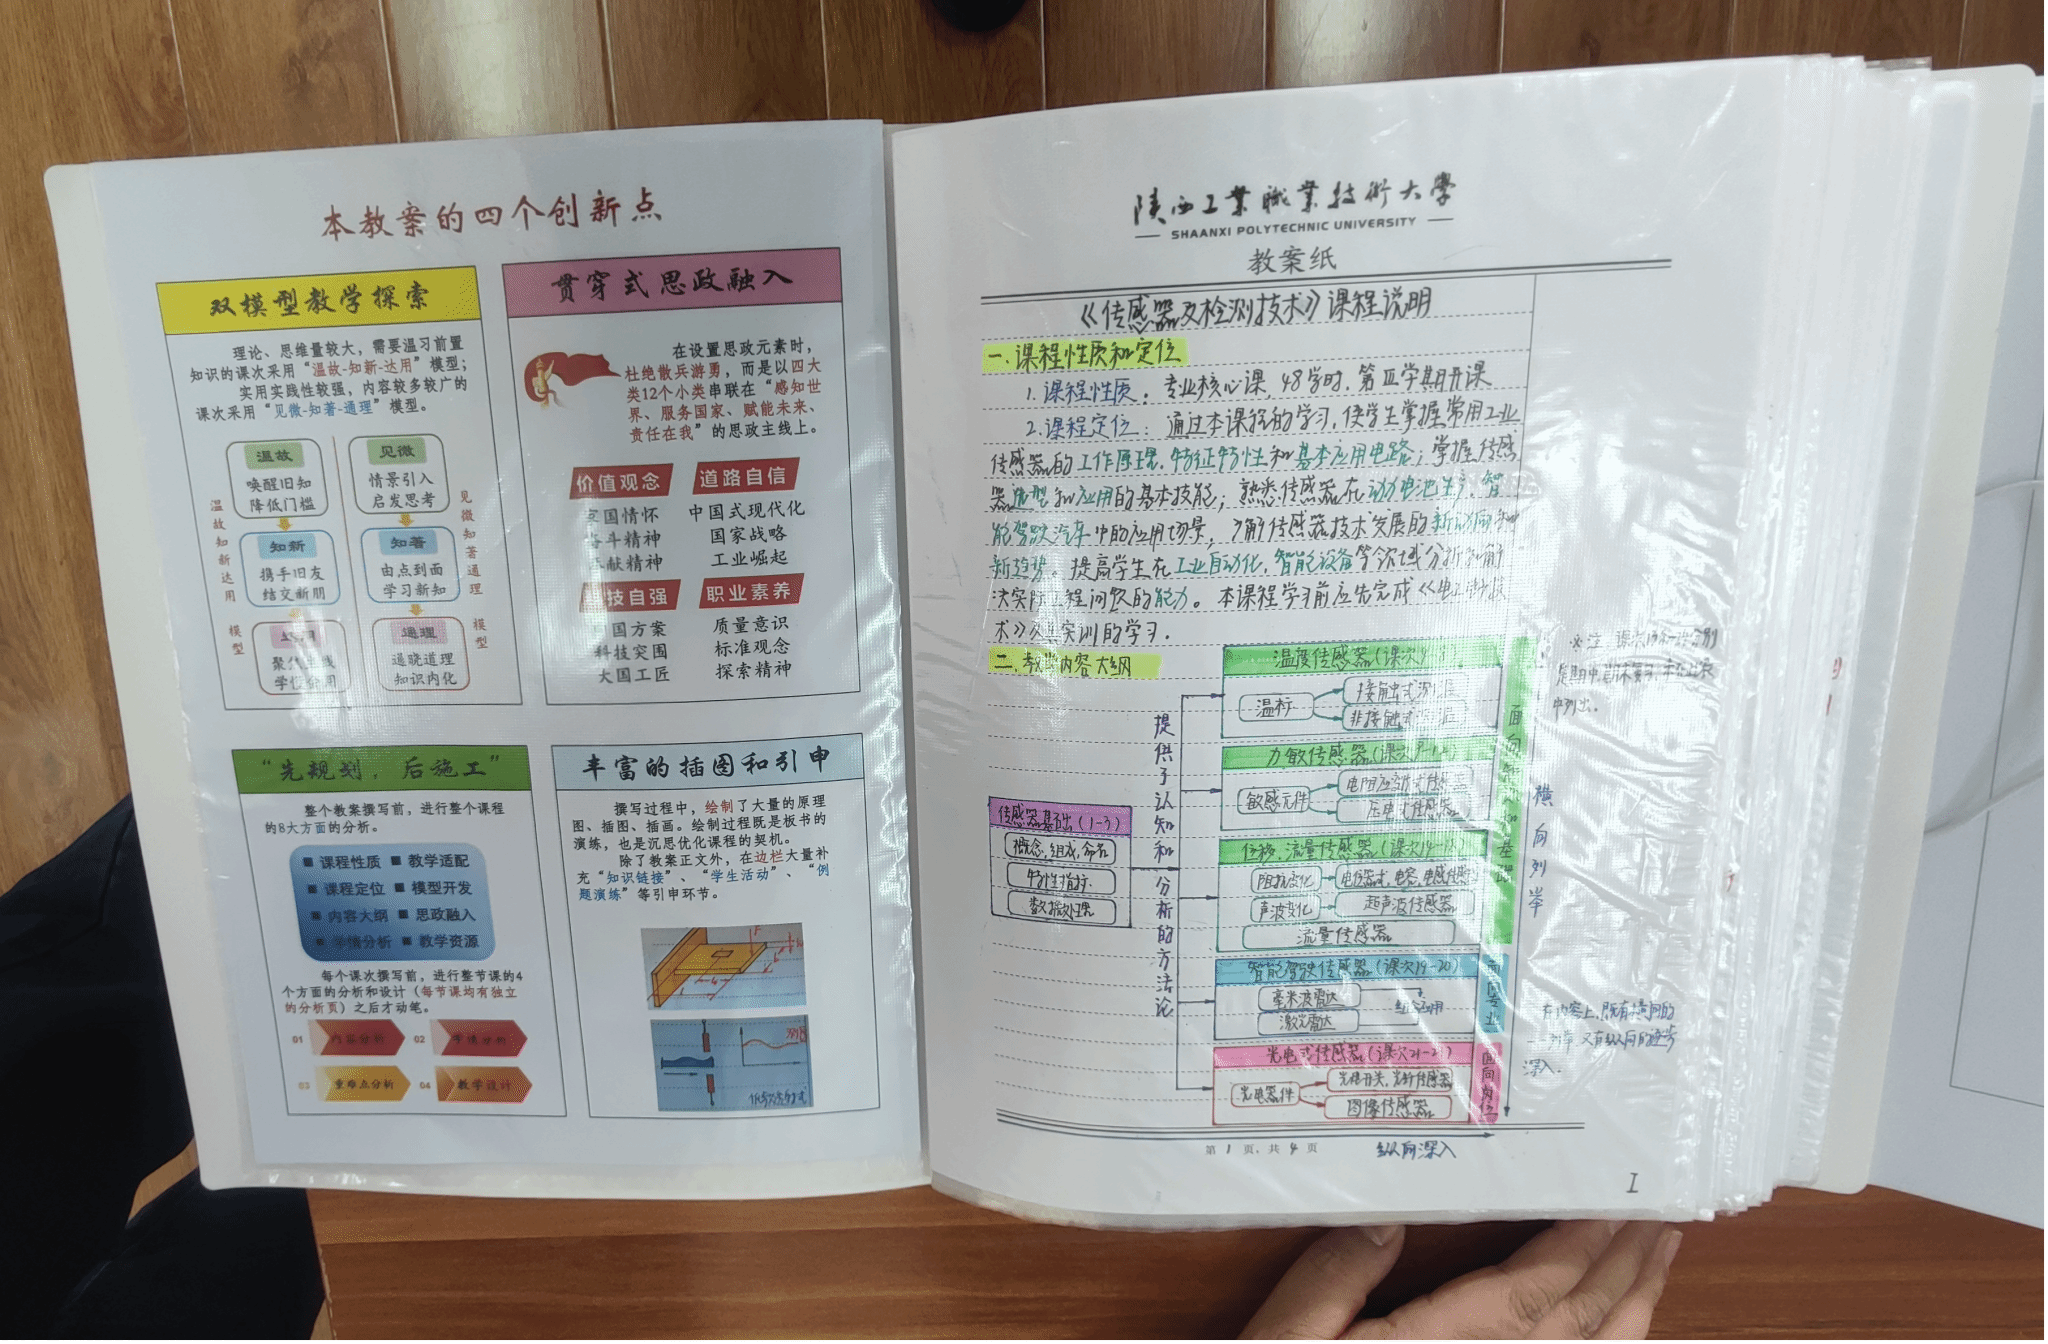 本教案的四个创新点
双模型教学探索
理论、思维量较大，需要温习前置
知识的课次采用“温故-知新-达用”模型；
实用实践性较强，内容较多较广的
课次采用“见微-知著-通理”模型。
温故知新达用
模型
温故
唤醒旧知
降低门槛
知新
携手旧友
结交新朋
见微
情景引入
启发思考
知著
由点到面
学习新知
通理
通晓道理
知识内化
见微知著通理
模型
贯穿式思政融入
在设置思政元素时，
杜绝散兵游勇，而是以四大
类12个小类串联在“感知世
界、服务国家、赋能未来、
责任在我”的思政主线上。
价值观念
家国情怀
奋斗精神
奉献精神
道路自信
中国式现代化
国家战略
工业崛起
科技自强
中国方案
科技突围
大国工匠
职业素养
质量意识
标准观念
探索精神
“先规划，后施工”
整个教案撰写前，进行整个课程
的8大方面的分析。
■ 课程性质 ■ 教学适配
■ 课程定位 ■ 模型开发
■ 内容大纲 ■ 思政融入
■ 学情分析 ■ 教学资源
每个课次撰写前，进行整节课的4
个方面的分析和设计（每节课均有独立
的分析页）之后才动笔。
01 内容分析 02 学情分析
03 重难点分析 04 教学设计
丰富的插图和引申
撰写过程中，绘制了大量的原理
图、插图、插画。绘制过程既是板书的
演练，也是沉思优化课程的契机。
除了教案正文外，在边栏大量补
充“知识链接”、“学生活动”、“例
题演练”等引申环节。
陕西工业职业技术大学
SHAANXI POLYTECHNIC UNIVERSITY
教案纸
《传感器及检测技术》课程说明
一.课程性质和定位
1.课程性质：专业核心课，48学时，第Ⅲ学期开课
2.课程定位：通过本课程的学习，使学生掌握常用工业
传感器的工作原理、特征特性和基本应用电路；掌握传感
器选型和应用的基本技能；熟悉传感器在动力电池生产、智
能驾驶汽车中的应用场景，了解传感器技术发展的新动向和
新趋势。提高学生在工业自动化，智能设备等领域分析和解
决实际工程问题的能力。本课程学习前应先完成《电工电子技
术》及其实训的学习.
二.教学内容大纲
传感器基础（1-3）
概念，组成，命名
特性指标
数据处理
提供了认知和分析的方法论
温度传感器（课次
温标
接触式测温
非接触式测温
力敏传感器（课次9-12）
敏感元件
电阻应变式传感器
压电式传感器
位移、流量传感器（课次14-18）
阻抗变化
电位器式，电容，电感传感
声波变化
超声波传感器
流量传感器
智能驾驶传感器（课次19-20）
毫米波雷达
激光雷达
组合应用
光电式传感器（课次21-2
光电器件
光电开关，光纤传感器
图像传感器
面向专业
面向岗位
横向列举
在内容上，既有横向的
列举 又有纵向的逐步
深入.
第 1 页，共 4 页
纵向深入
I